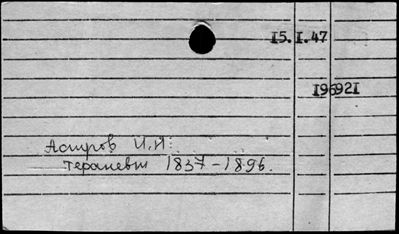 15.I.47
196921
Астров И.И.
терапевт 1837-1896.